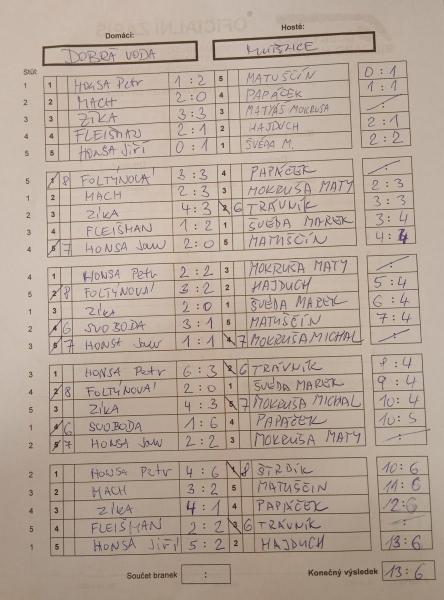 Domácí:
Hosté:
DOBRÁ VODA
Stůl:
1 1 HONSA Petr 1 : 2 5 MATUŠČÍN 0 : 1
2 2 MACH 2 : 0 4 PAPÁČEK 1 : 1
3 3 ZÍKA 3 : 3 3 MATYÁŠ MOKRUŠA :
4 4 FLEISHMAN 2 : 1 2 HAJDUCH 2 : 1
5 5 HONSA JIŘÍ 0 : 1 1 ŠVÉDA M. 2 : 2
5 1 8 FOLTÝNOVÁ 3 : 3 4 PAPÁČEK :
1 2 MACH 2 : 3 3 MOKRUŠA MATY 2 : 3
2 3 ZÍKA 4 : 3 2 6 TRÁVNÍK 3 : 3
3 4 FLEISHMAN 1 : 2 1 ŠVÉDA MAREK 3 : 4
4 5 7 HONSA 2 : 0 5 MATUŠČÍN 4 : 4
4 1 HONSA Petr 2 : 2 3 MOKRUŠA MATY :
5 2 8 FOLTÝNOVÁ 3 : 2 2 HAJDUCH 5 : 4
1 3 ZÍKA 2 : 0 1 ŠVÉDA MAREK 6 : 4
2 4 6 SVOBODA 3 : 1 5 MATUŠČÍN 7 : 4
3 5 7 HONSA 1 : 1 4 7 MOKRUŠA MICHAL :
3 1 HONSA Petr 6 : 3 2 6 TRÁVNÍK 8 : 4
4 2 8 FOLTÝNOVÁ 2 : 0 1 ŠVÉDA MAREK 9 : 4
5 3 ZÍKA 4 : 3 5 7 MOKRUŠA MICHAL 10 : 4
1 4 6 SVOBODA 1 : 6 4 PAPÁČEK 10 : 5
2 5 7 HONSA 2 : 2 3 MOKRUŠA MATY :
2 1 HONSA Petr 4 : 6 1 8 ŠTRBÍK 10 : 6
3 2 MACH 3 : 2 5 MATUŠČÍN 11 : 6
4 3 ZÍKA 4 : 1 4 PAPÁČEK 12 : 6
5 4 FLEIŠMAN 2 : 2 3 6 TRÁVNÍK :
1 5 HONSA JIŘÍ 5 : 2 2 HAJDUCH 13 : 6
Součet branek : Konečný výsledek 13 : 6